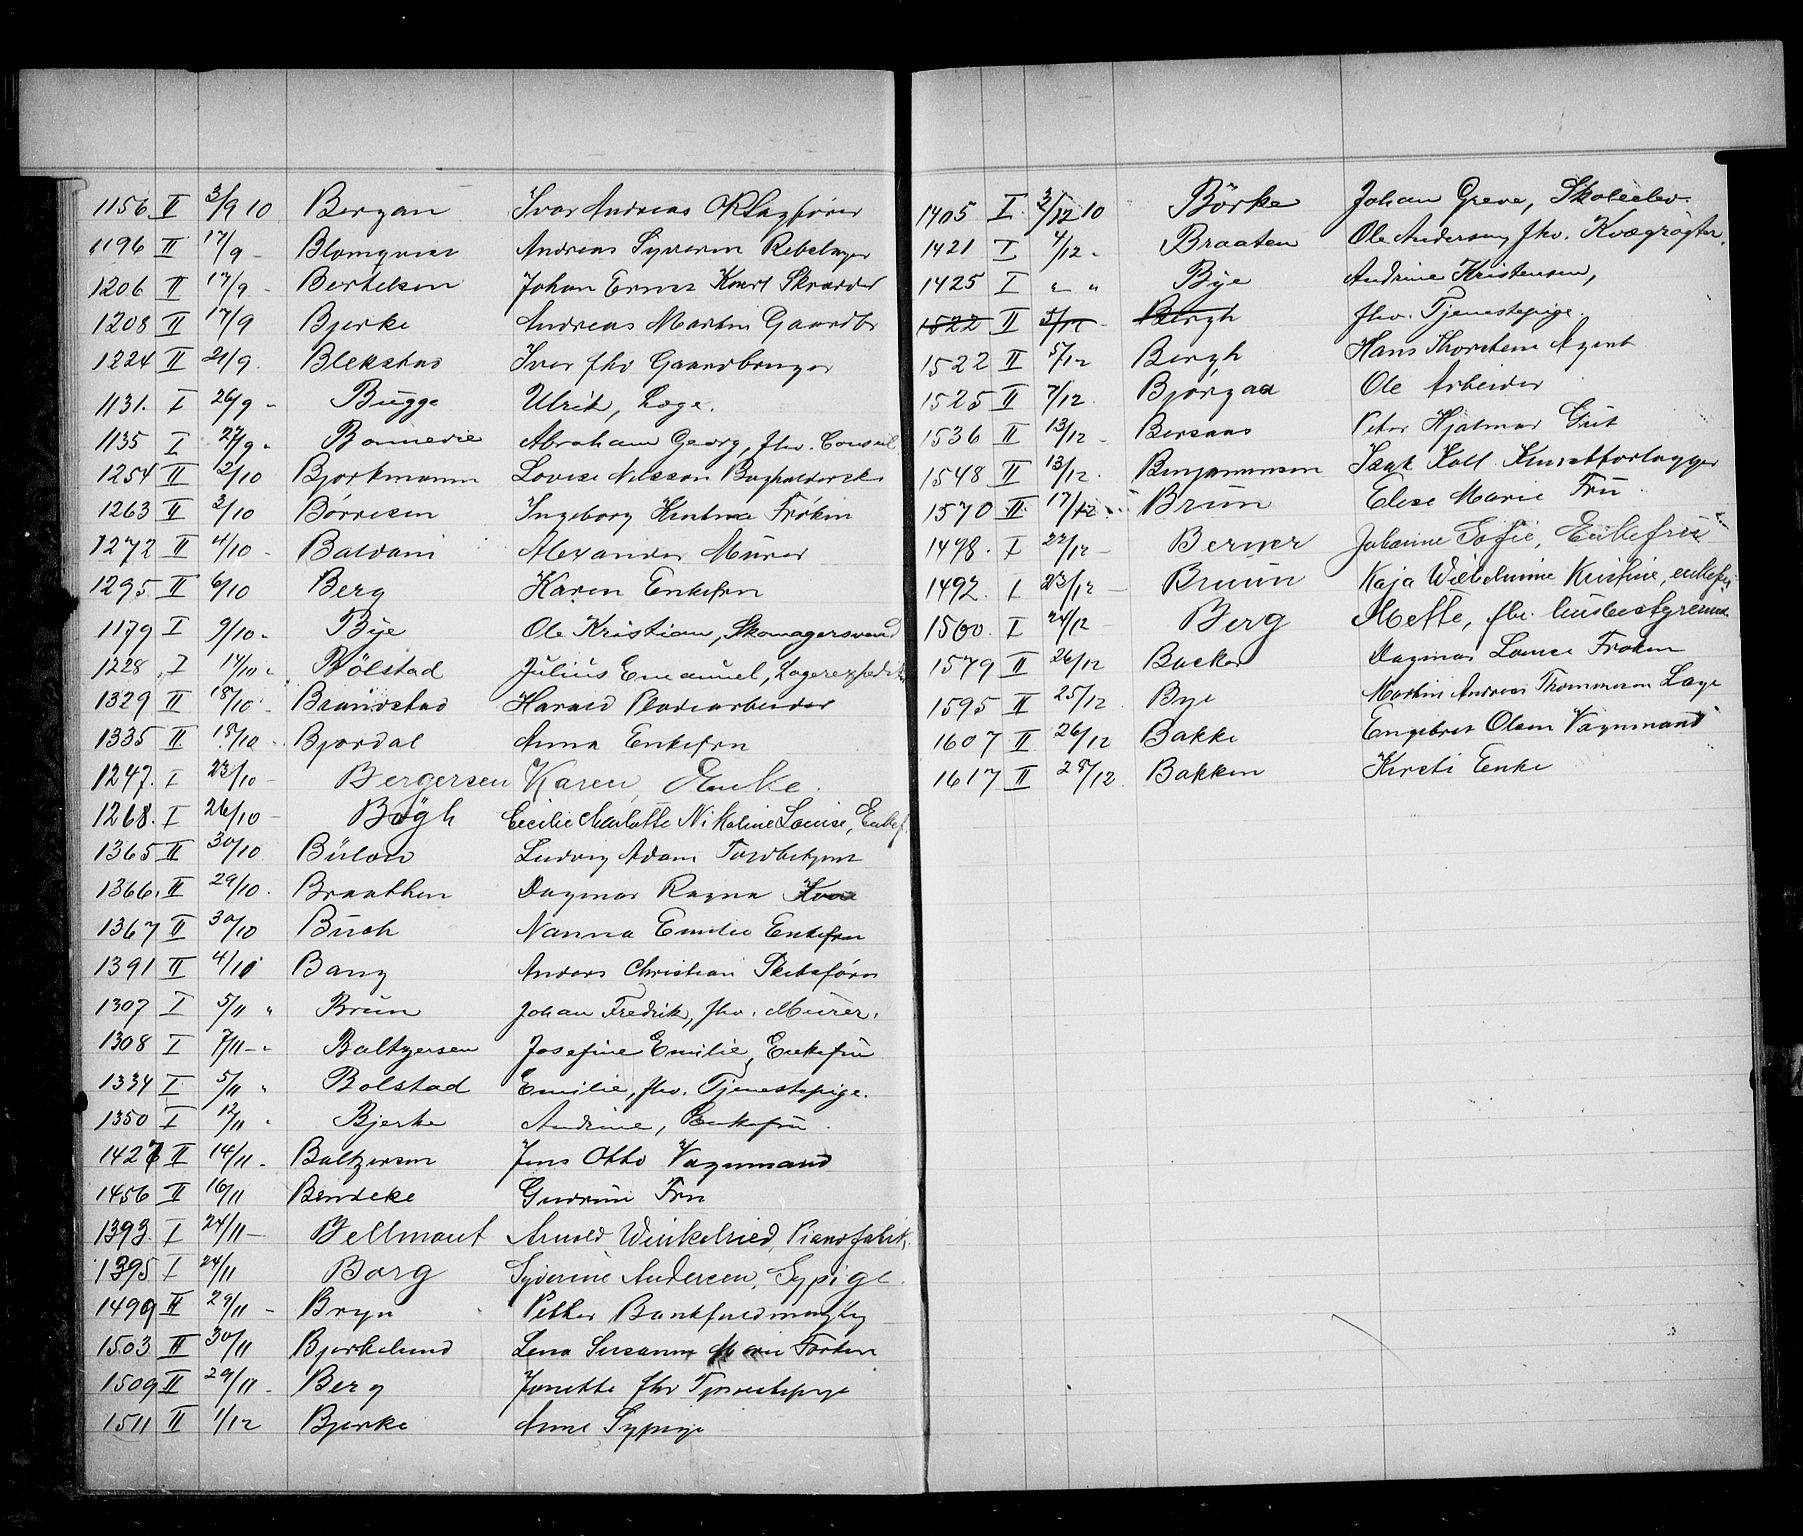 1156 II 3/9 10 Bergan Ivar Andreas
1196 II 17/9 - Blomqvist Andreas Syversen Rebslager
1206 II 17/9 - Bertelsen Johan Ernst Skrædder
1208 II 17/9 Bjerke Andreas Martin Gaardbr
1224 II 21/9. Blekstad Iver fhv Gaardbruger
1131. I 26/9 - Bugge Ulrik, Læge.
1135 I 27/9 " Bonnevie Abraham Georg, fhv. Consul
1254 II 2/10 Bjorkmann Lovise Nilsson Bogholderske
1263 II 3/10 Børresen Ingeborg Frøken
1272 II 4/10 - Baldani Alexander Murer
1295 II 6/10 Berg Karen Enkefru
1179 I 9/10 " Bye Ole Kristian, Skomagersvend
1228 I 14/10 " Bölstad Julius Emanuel, Lagerexpedit
1329 II 18/10 - Brandstad Harald Pladearbeider
1335 II 18/10 - Bjordal Anna Enkefru
1247. I 23/10 - Bergersen Karen, Enke.
1268. I 26/10 - Bøgh Cecilie Charlotte Nikoline Louise, Enkef.
1365 II 30/10 Bülow Ludvig Adam Toldbetjent
1366. II 29/10. Braathen Dagmar Ragna
1367 II 30/10 Buch Nanna Emilie Enkefru
1391 II 4/11 Bang Anders Christian Skibsfører
1307 I 5/11 " Bruun Johan Fredrik, fhv. Murer.
1308 I 7/11 - " Baltzersen Josefine Emilie, Enkefru
1334 I 5/11 " Bolstad Emilie, fhv. Tjenestepige.
1350 I 12/11 " Bjerke Andrine, Enkefru.
1427 II 14/11 - Baltzersen Jens Otto Vognmand
1456 II 16/11 Bendeke Gudrun Fru
1393. I 24/11 - Bellmont Arnold Winkelried, Pianofabrik.
1395 I 24/11 Borg Syverine Andersen, Sypige.
1499 II 29/11 - Bryn Petter
1503 II 30/11 Bjerkelund Lena Susanne Marie Frøken
1509 II 29/11 - Berg Jonette fhv Tjenestepige
1511 II 1/12 Bjerke Anne Sypige
1405 I 3/12 10 Börke Johan Greve, Skoleelev.
1421 I 4/12 - Braaten Ole Andersen, fhv. Kvægrøgter.
1425 I " " Bye Andrine Kristensen,
1522 II 5/12 - Bergh fhv. Tjenestepige.
1522 II 5/12 Bergh Hans Thorstein Agent
1525 II 7/12. Bjørgaa Ole Arbeider
1536 II 13/12 - Bersaas Peter Hjalmar Gut
1548 II 13/12. Benjaminsen Isak Koll Kunstforlægger
1570 II 17/12 Brun Elise Marie Fru
1498. I 22/12 - Berner Johanne Sofie, Enkefru
1492. I 23/12 - Bruun Kaja Wilhelmine Kristine, enkefru
1500. I 24/12 - Berg Mette, fhv. husbestyrerinde
1579 II 26/12 Backer Dagmar Louise Frøken
1595 II 25/12 Bye Martin Andreas Thommesen Læge
1607 II 26/12 Bakke Engebret Olsen Vognmand
1617 II 28/12 Bakken Kirsti Enke